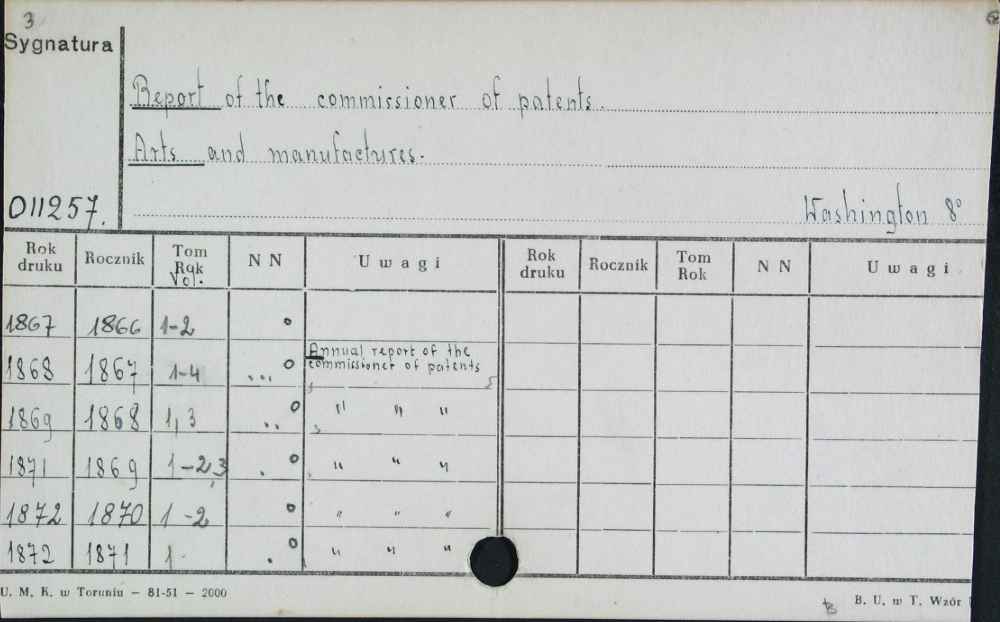 3
Sygnatura
Report of the commissioner of patents.
Arts and manufactures.
011257.
Washington 8°
Rok druku Rocznik Tom Rok Vol. NN Uwagi Rok druku Rocznik Tom Rok NN Uwagi
1867 1866 1-2
1868 1867 1-4 Annual report of the
commissioner of patents
1869 1868 1,3 " " "
1871 1869 1-2,3 " " "
1872 1870 1-2 " " "
1872 1871 1 " " "
U. M. K. w Toruniu — 81-51 — 2000
B. U. w T. Wzór